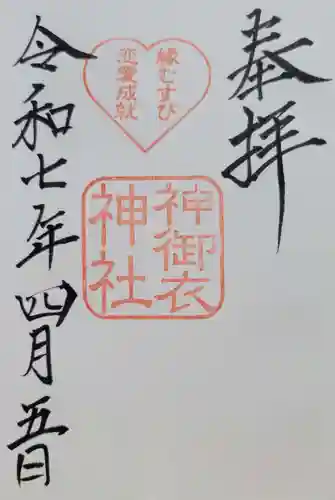 奉拝
縁むすび
恋愛成就
神御衣
神社
令和七年四月五日